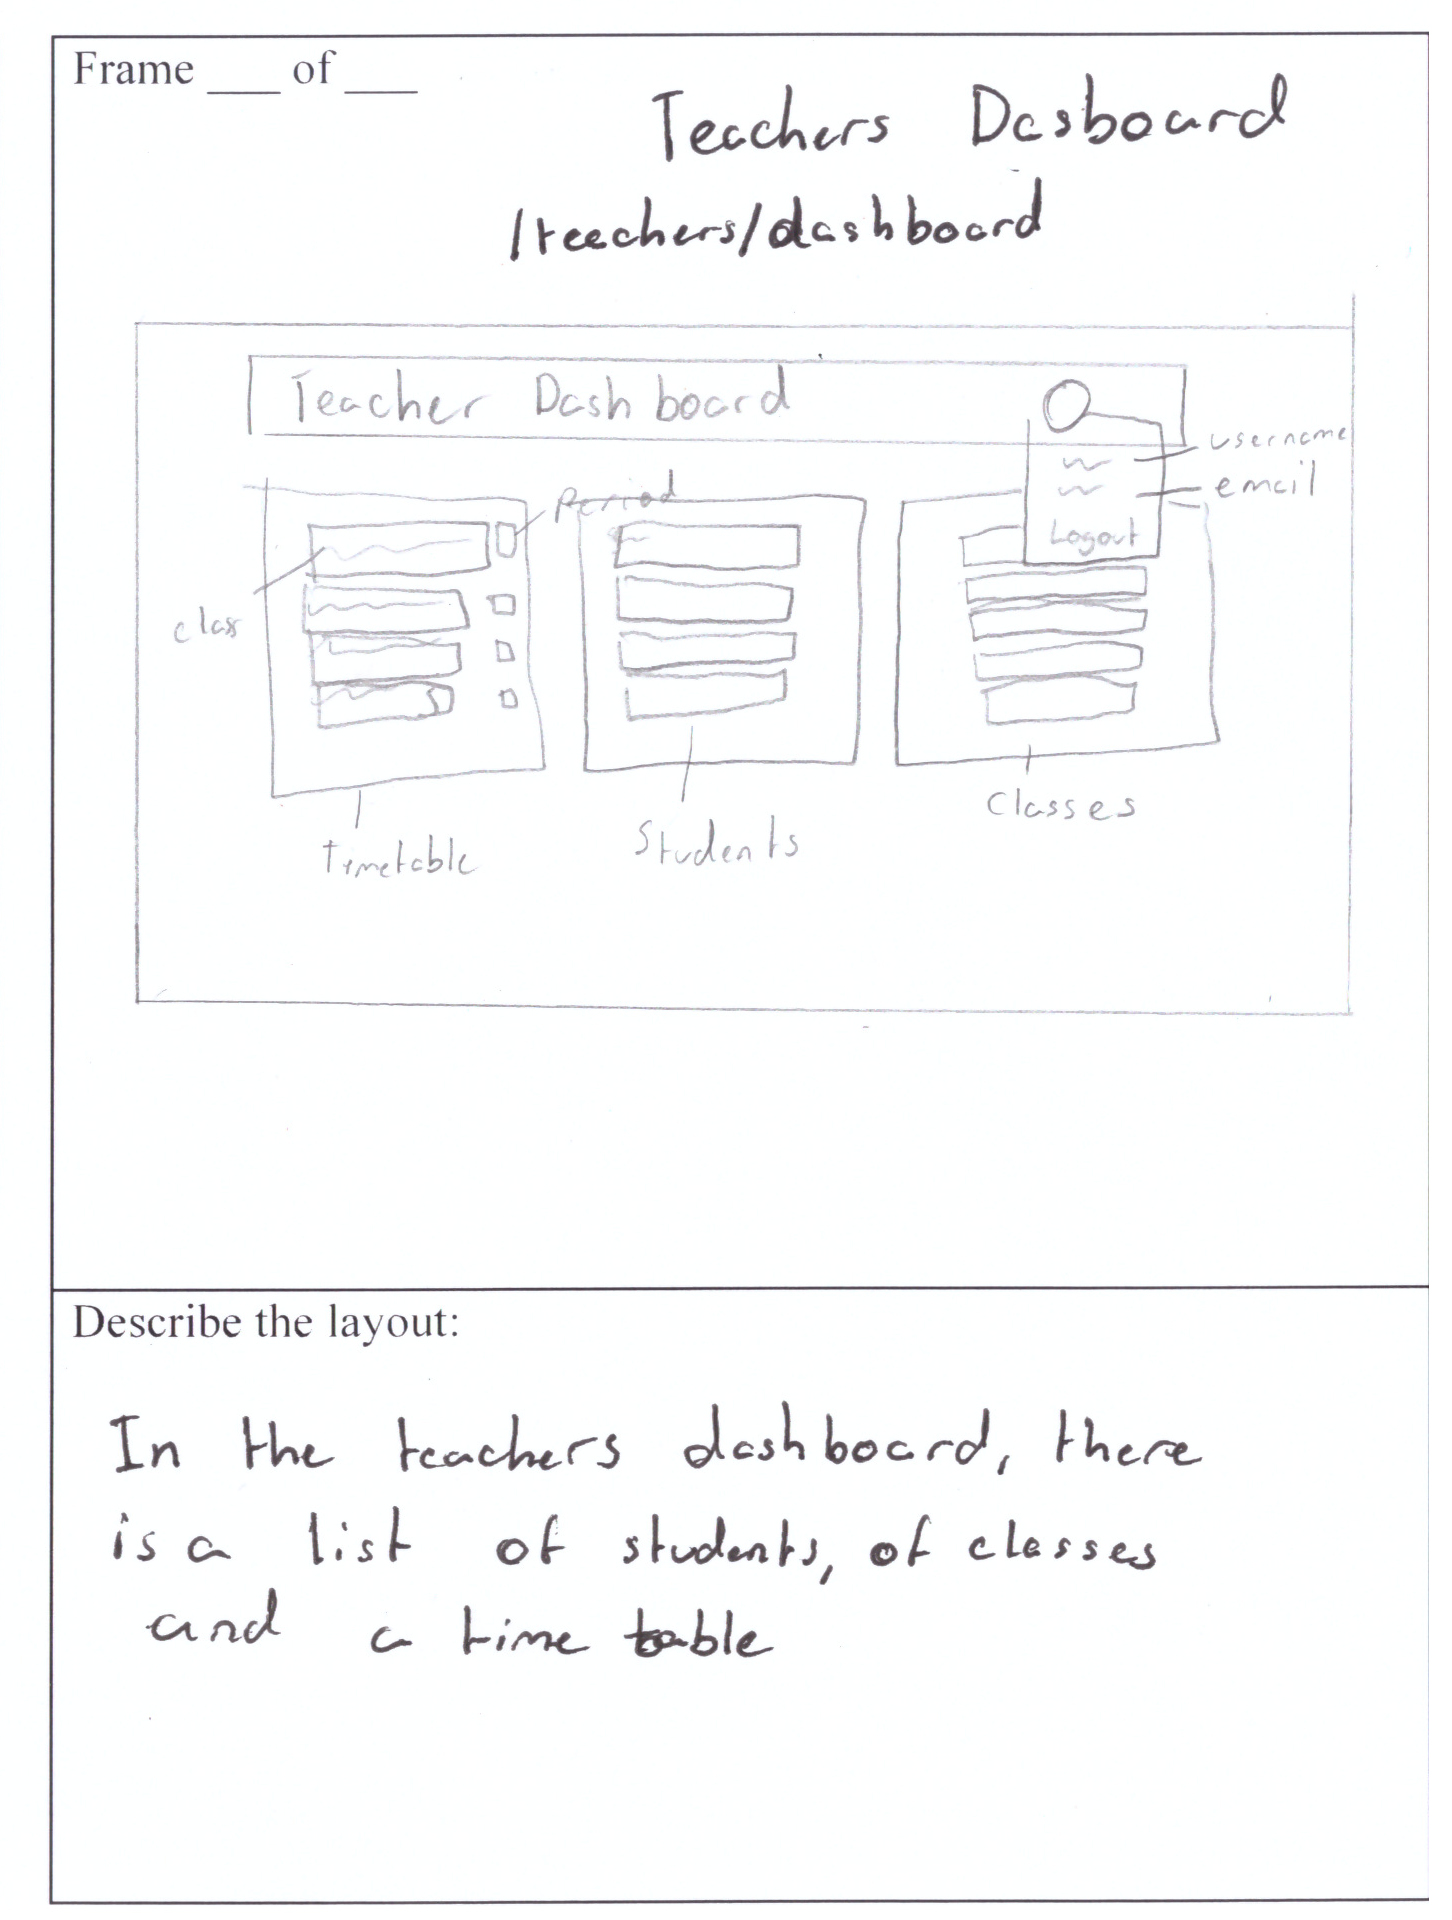 Frame ___ of ___
Teachers Dasboard
/teachers/dashboard
Teacher Dashboard
username
email
Logout
Period
class
Timetable
Students
Classes
Describe the layout:
In the teachers dashboard, there
is a list of students, of classes
and a time table